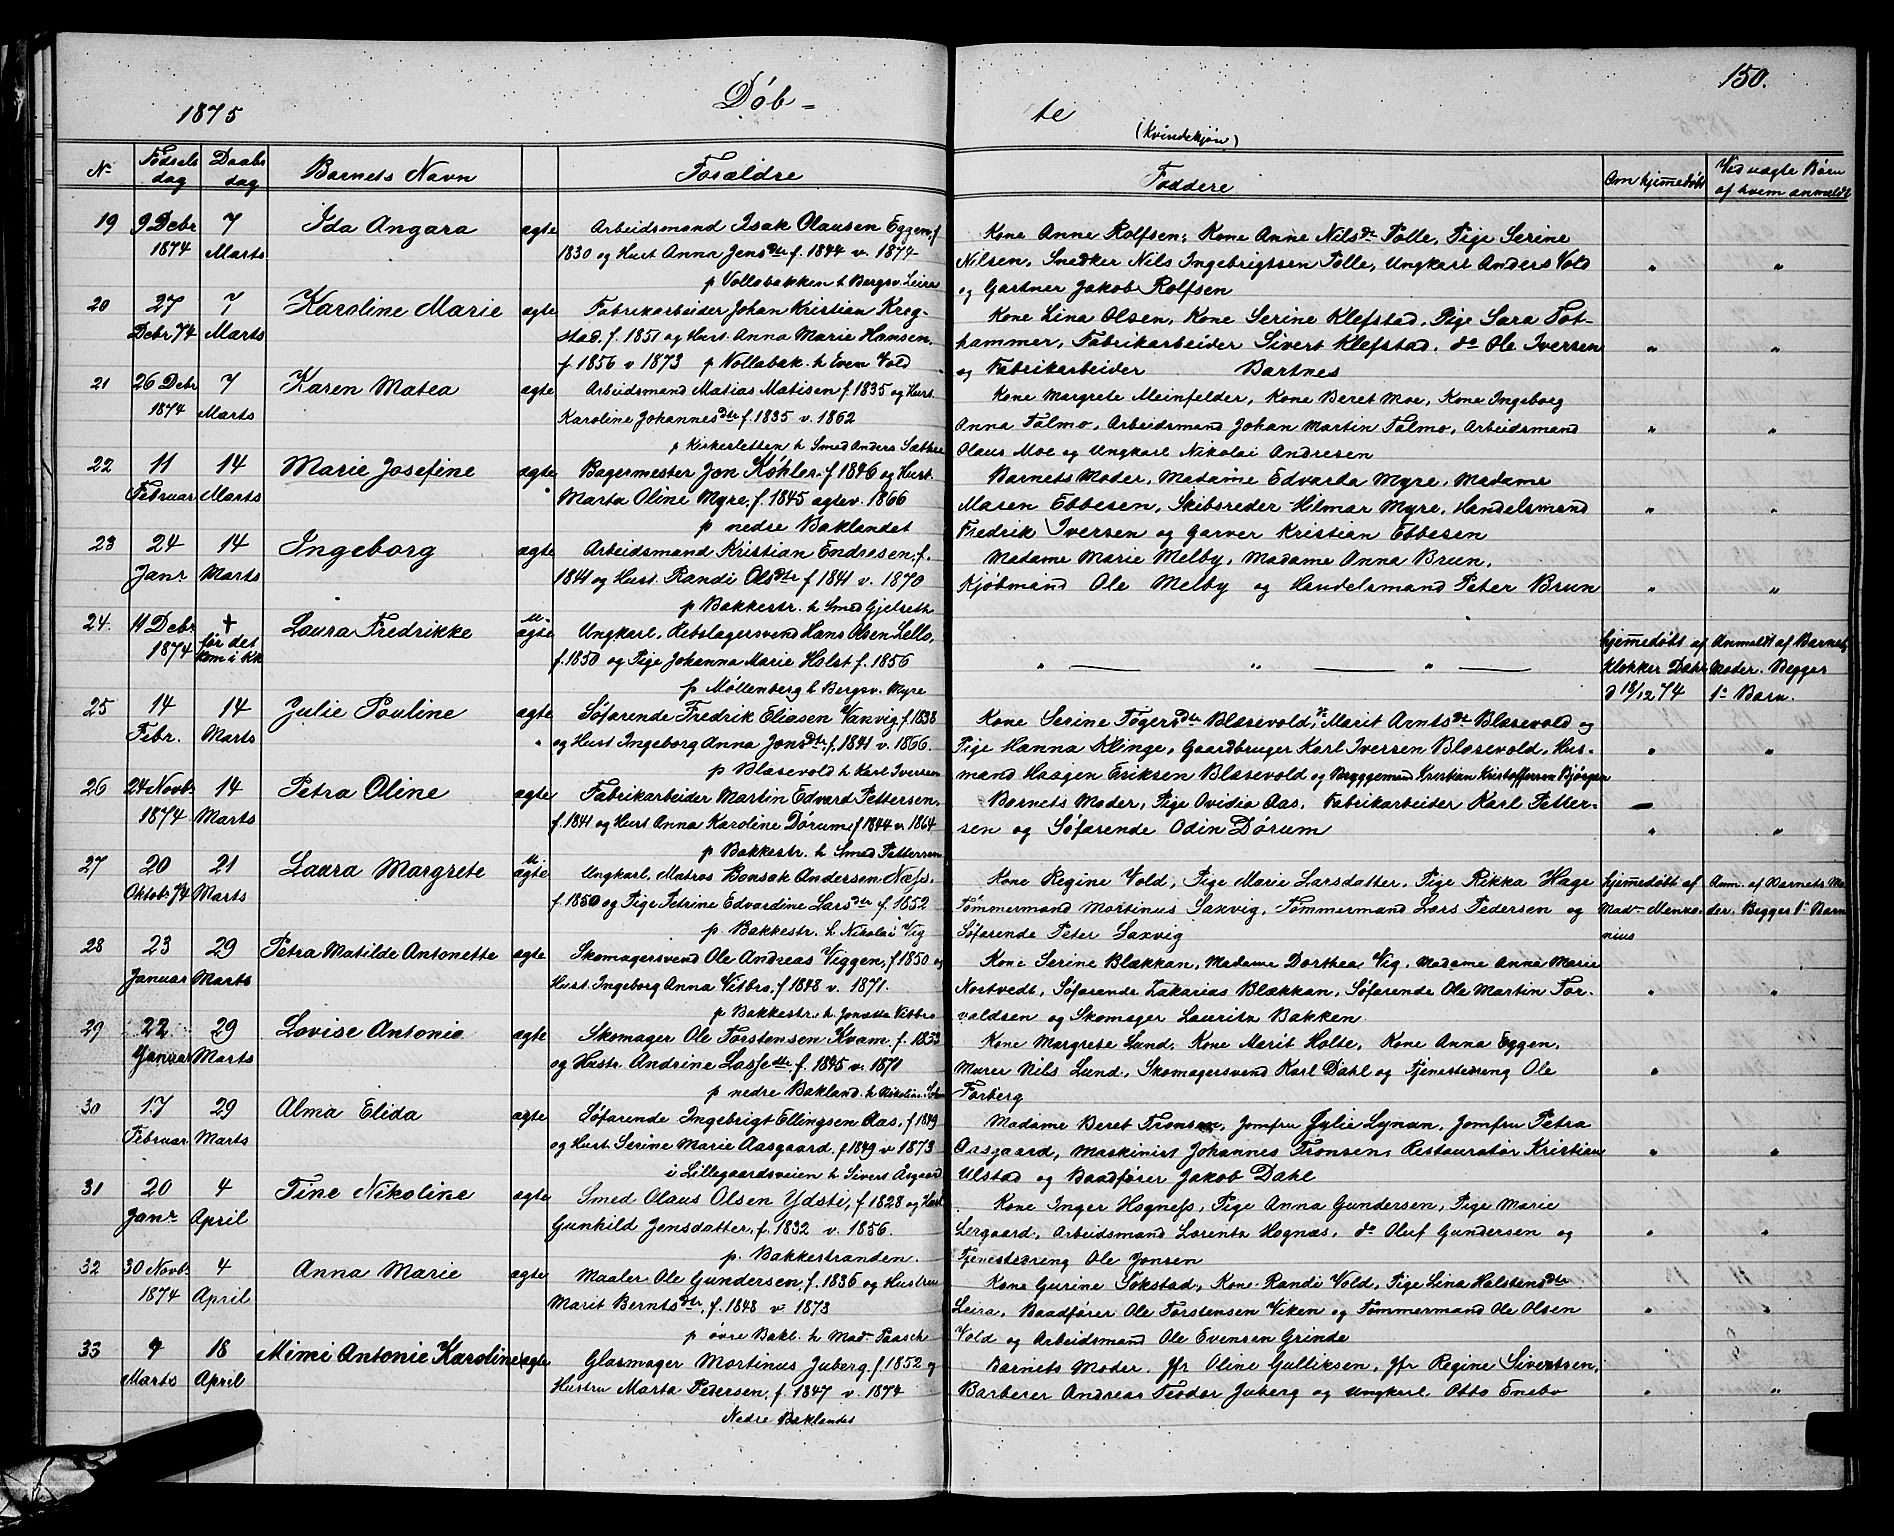 1875
Döb-
te
(Kvindekjøn)
150.
No
Fødsels dag
Daabs dag
Barnets Navn
Forældre
Faddere
Om hjemmedøbt
Ved uægte Børn af hvem anmeldt
19 9 Debr 7 Ida Angara ægte Arbeidsmand Isak Olausen Eggen, f. Kone Anne Rolfsen, Kone Anne Nilsdtr Tolle, Pige Serine
1874 Marts 1830 og Hust Anna Jensdtr f. 1844 v. 1874 Nilsen, Snedker Nils Ingebrigtsen Tolle, Ungkarl Anders Vold " "
p Vollabakken h Bergsv. Leira og Gartner Jakob Rolfsen
20 27 7 Karoline Marie ægte Fabrikarbeider Johan Kristian Kreg- Kone Lina Olsen, Kone Serine Klefstad, Pige Sara Tot-
Debr 74 Marts stad, f. 1851 og Hust. Anna Marie Hansen. hammer, Fabrikarbeider Sivert Klefstad. do Ole Iversen " "
f. 1856 v 1873 p Vollabak. h Even Vold og Fabrikarbeider Bartnes
21 26 Debr 7 Karen Matea ægte Arbeidsmand Matias Matisen f. 1835 og Hust. Kone Margrete Meinfelder, Kone Beret Moe, Kone Ingeborg
1874 Marts Karoline Johannesdtr f. 1835 v. 1862 Anna Talmo, Arbeidsmand Johan Martin Talmo, Arbeidsmand " "
p Kirkesletten h Smed Anders Sæther Olaus Moe og Ungkarl Nikolai Andresen
22 11 14 Marie Josefine ægte Bagermester Jon Köhler f. 1846 og Hust. Barnets Moder, Madame Edvarda Myre, Madame
Februar Marts " Marta Oline Myre, f. 1845 ægtev. 1866 Maren Ebbesen, Skibsreder Hilmar Myre, Handelsmand " "
p nedre Baklandet Fredrik Iversen og Garver Kristian Ebbesen
23 24 14 Ingeborg ægte Arbeidsmand Kristian Endresen, f. Madame Marie Melby, Madame Anna Brun,
Janr Marts 1841 og Hust. Randi Olsdtr f 1841 v. 1870 Kjöbmand Ole Melby og Handelsmand Peter Brun " "
p Bakkestr. h Smed Gjelseth
24. 11 Debr + Laura Fredrikke u-ægte Ungkarl, Rebslagersvend Hans Olsen Lello, hjemmedøbt af Anmeldt af Barnets
1874 før det kom i kk f. 1850 og Pige Johanna Marie Holst f. 1856 " " " Klokker Dahl Moder. Begges
p Möllenberg h Bergsv. Myre d 18/12 74 1e Barn.
25 14 14 Julie Pauline ægte Söfarende Fredrik Eliasen Vanvig f. 1838 Kone Serine Tögersdtr Blæsevold, K Marit Arntsdtr Blæsevold og
Febr. Marts " og Hust Ingeborg Anna Jonsdtr f. 1841 v. 1866. Pige Hanna Klinge, Gaardbruger Karl Iversen Blæsevold, Hus- " "
p Blæsevold h Karl Iversen mand Haagen Eriksen Blæsevold og Bryggemand Kristian Kristoffersen Bjørgan
26 24 Novb. 14 Petra Oline ægte Fabrikarbeider Martin Edvard Pettersen, Barnets Moder, Pige Ovidia Aas, Fabrikarbeider Karl Petter-
1874 Marts f. 1841 og Hust Anna Karoline Dörum, f 1844 v. 1864 sen og Söfarende Odin Dörum " "
p Bakkestr. h Smed Pettersen
27 20 21 Laura Margrete u-ægte Ungkarl, Matros Bonsak Andersen Næss. Kone Regine Vold, Pige Marie Larsdatter, Pige Rikka Hage hjemmedøbt af Anm. af Barnets Mo
Oktob. 74 Marts f. 1850 og Pige Petrine Edvardine Larsdtr f. 1852 Tömmermand Martinus Saxvig, Tömmermand Lars Pedersen og Madm Menxo- der. Begges 1e Barn
p. Bakkestr. h Nikolai Vig Söfarende Peter Saxvig nius
28 23 29 Petra Matilde Antonette ægte Skomagersvend Ole Andreas Viggen, f 1850 og Kone Serine Blækkan, Madame Dorthea Vig, Madame Anna Marie
Januar Marts Hust. Ingeborg Anna Vitbro, f 1848 v. 1871. Nostvedt, Söfarende Zakarias Blækkan, Söfarende Ole Martin Tor- " "
p Bakkestr. h Jonetta Vitbro valdsen og Skomager Lauritz Bakken.
29 22 29 Lovise Antonie ægte Skomager Ole Torstensen Kvam. f. 1853 Kone Margrete Lund, Kone Marit Holte, Kone Anna Eggen,
Januar Marts og Hustr. Andrine Lassedtr. f. 1845 v. 1871 Murer Nils Lund, Skomagersvend Karl Dahl og Tjenestedreng Ole "
p nedre Bakland. h Forberg
30 17 29 Alma Elida ægte Söfarende Ingebrigt Ellingsen Aas, f 1849 Madame Beret Tronsen, Jomfru Julie Lynan, Jomfru Petra
Februar Marts og Hust Serine Marie Aasgaard, f 1849 v 1873 Aasgaard, Maskinist Johannes Tronsen, Restauratör Kristian " "
i Lillegaardsveien h Sivert Asgaard Ulstad og Baadförer Jakob Dahl
31 20 4 Tine Nikoline ægte Smed Olaus Olsen Ydsti, f 1828 og Hust Kone Inger Hogness, Pige Anna Gundersen, Pige Marie
Janr April Gunhild Jensdatter, f. 1832 v. 1856. Lergaard, Arbeidsmand Lorentz Hognæs, do Oluf Gundersen og " "
p. Bakkestranden. Tjenestedreng Ole Jonsen
32 30 Novb. 4 Anna Marie ægte Maaler Ole Gundersen, f. 1836 og Hustru Kone Gurine Sokstad, Kone Randi Vold, Pige Lina Holstensdtr
1874 April Marit Berntsdtr, f. 1848 v. 1873 Leira, Baadförer Ole Torstensen Viken og Tömmermand Ole Olsen " "
p övre Bakl. h Madm Paasche Vold og Arbeidsmand Ole Evensen Grinde
33 9 18 Mimi Antonie Karoline ægte Glasmager Martinus Juberg, f 1852 og Barnets Moder, Jfr Oline Gulliksen, Jfr Regine Sivertsen,
Marts April Hustru Marta Pedersen, f. 1847 v. 1874 Barberer Andreas Teodor Juberg og Ungkarl Otto Enebo " "
Nedre Baklandet